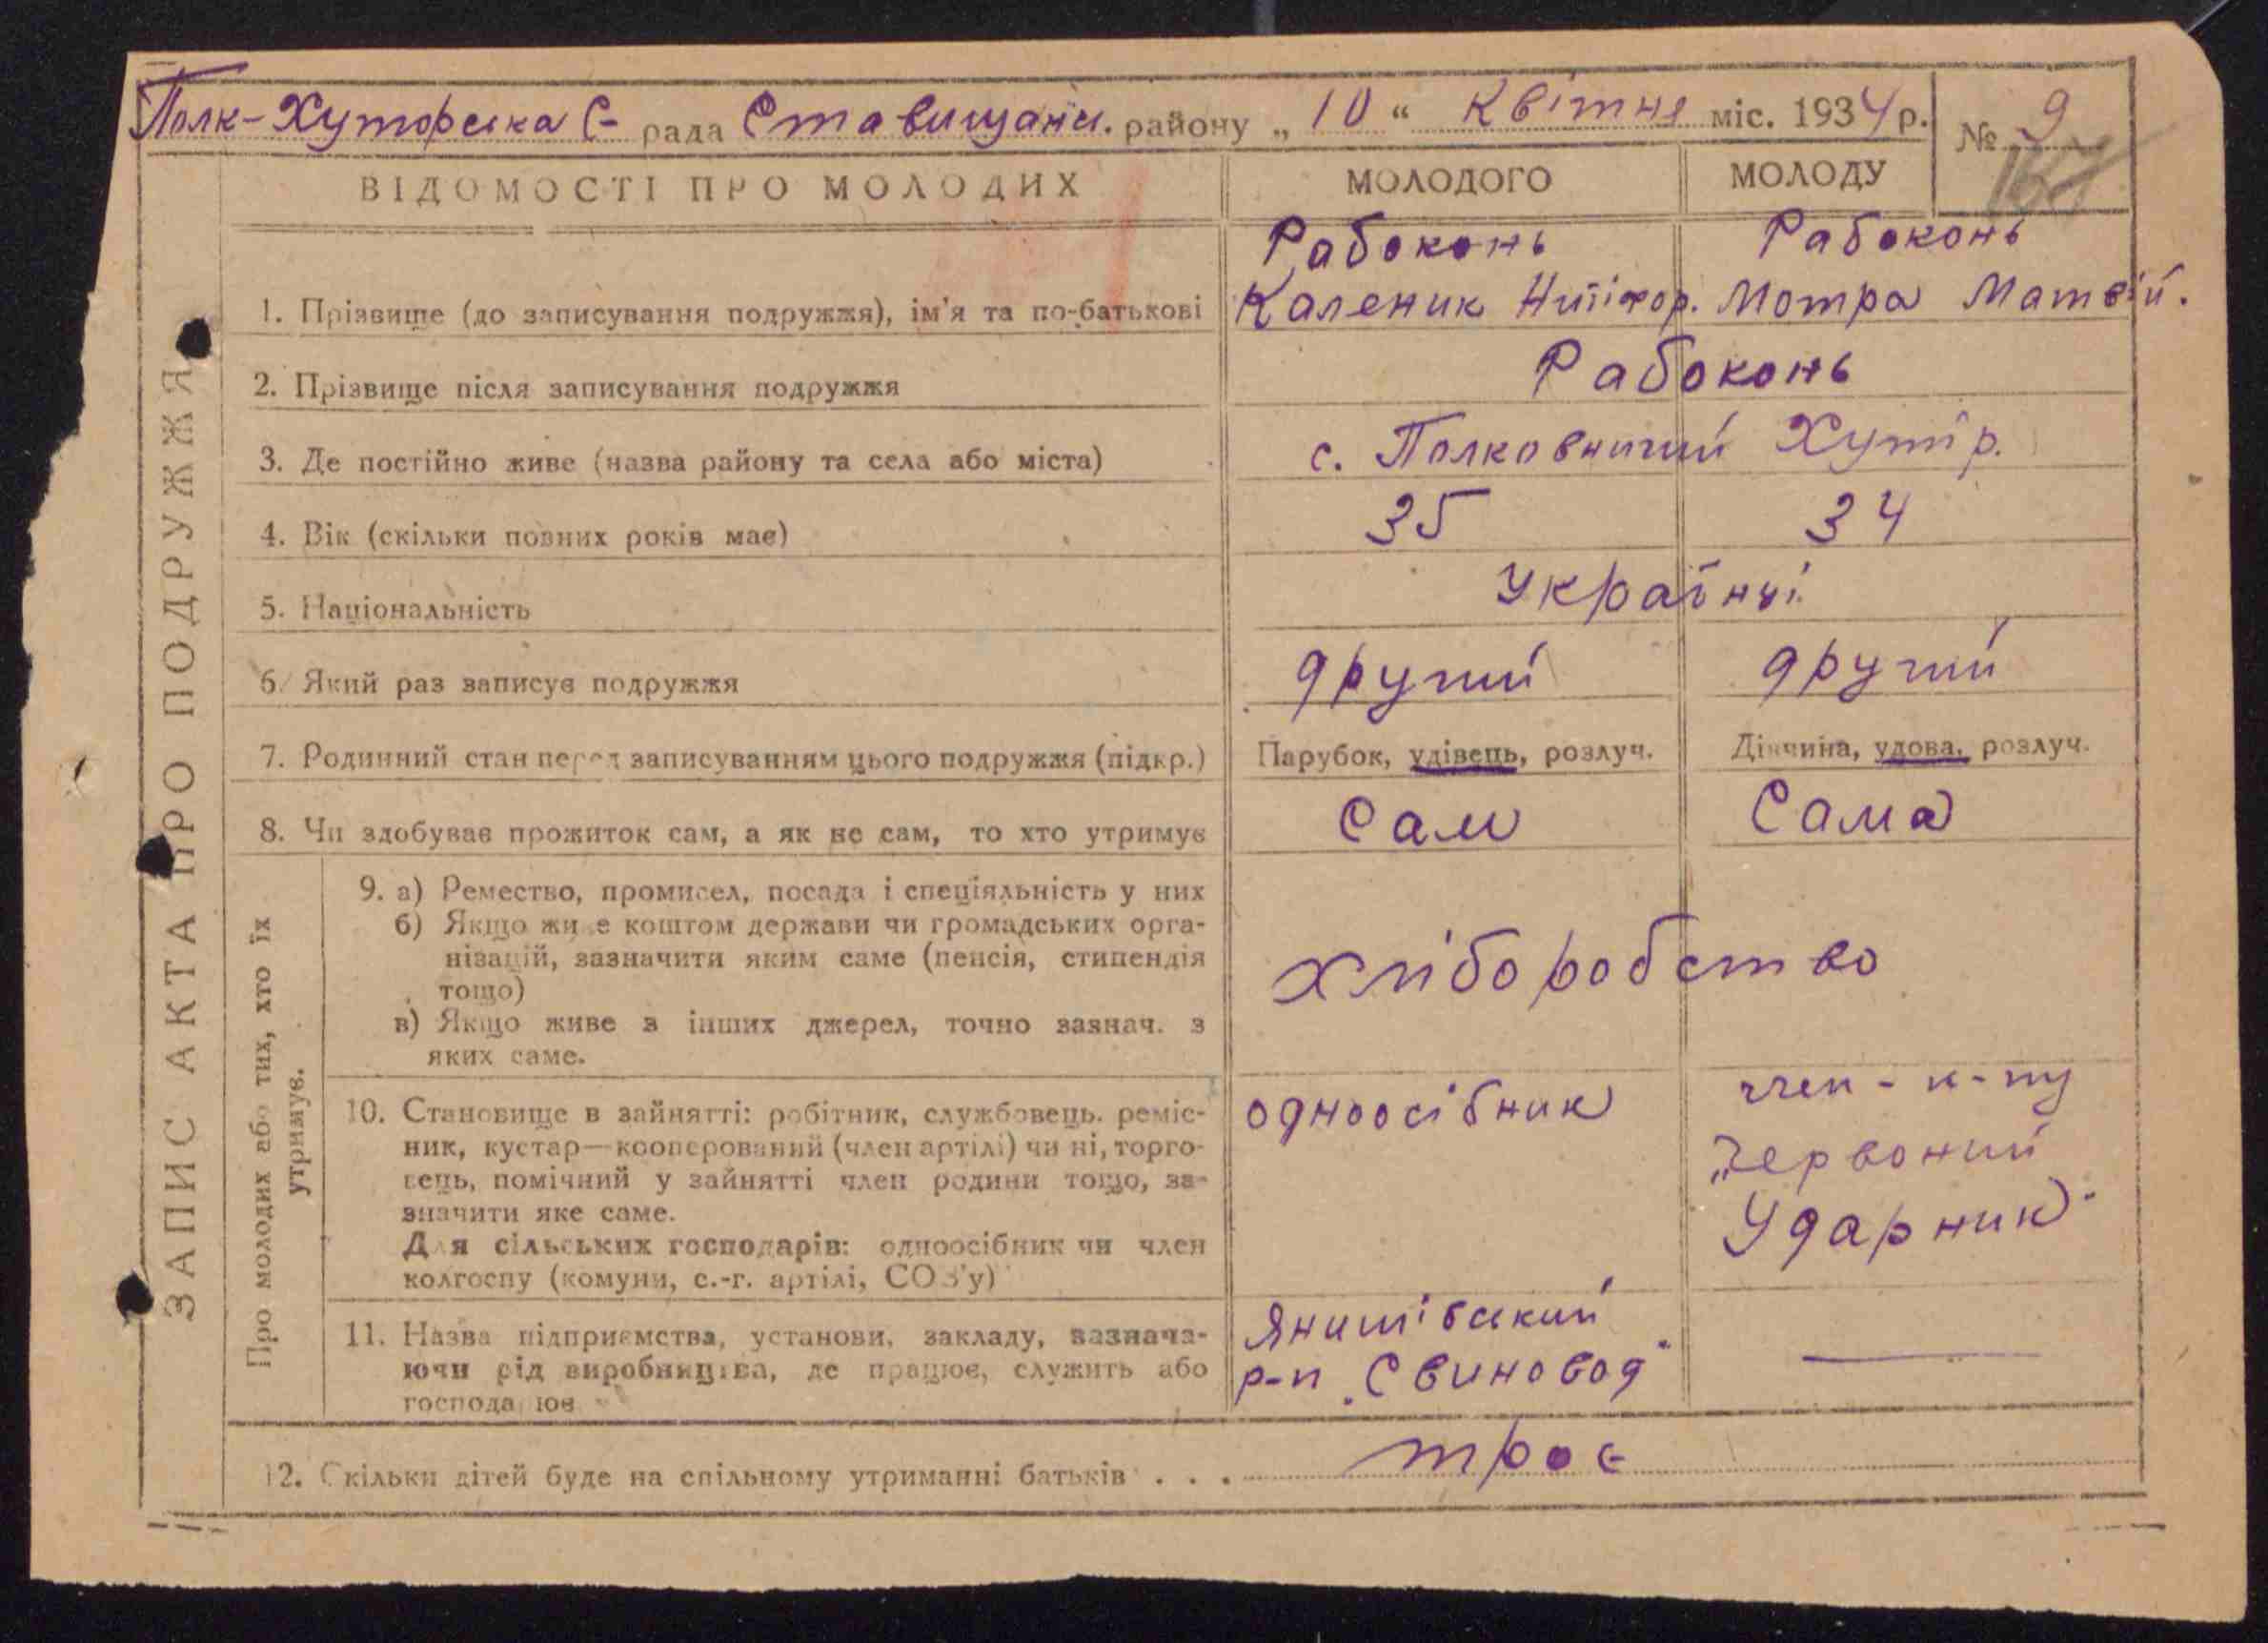 Полк-Хуторська С- рада Ставищанс. району „10“ Квітня міс. 1934 р. № 9
167
ЗАПИС АКТА ПРО ПОДРУЖЖЯ
ВІДОМОСТІ ПРО МОЛОДИХ МОЛОДОГО МОЛОДУ
Рабоконь Рабоконь
1. Прізвище (до записування подружжя), ім'я та по-батькові Каленик Ничіфор. Мотра Матвій.
2. Прізвище після записування подружжя Рабоконь
3. Де постійно живе (назва району та села або міста) с. Полковничий Хутір.
4. Вік (скільки повних років має) 35 34
5. Національність Українці
6. Який раз записує подружжя другий другий
7. Родинний стан перед записуванням цього подружжя (підкр.) Парубок, удівець, розлуч. Дівчина, удова, розлуч.
8. Чи здобуває прожиток сам, а як не сам, то хто утримує Сам Сама
Про молодих або тих, хто їх
утримує.
9. а) Ремество, промисел, посада і спеціяльність у них
б) Якщо живе коштом держави чи громадських орга-
нізацій, зазначити яким саме (пенсія, стипендія
тощо)
в) Якщо живе з інших джерел, точно зазнач. з
яких саме.
хліборобство
10. Становище в зайнятті: робітник, службовець. реміс-
ник, кустар—кооперований (член артілі) чи ні, торго-
вець, помічний у зайнятті член родини тощо, за-
значити яке саме.
Для сільських господарів: одноосібник чи член
колгоспу (комуни, с.-г. артілі, СОЗ'у)
одноосібник
член - к-пу
„Червоний
Ударник"
11. Назва підприємства, установи, закладу, зазнача-
ючи рід виробництва, де працює, служить або
господарює
Янишівський
р-п „Свиновод"
12. Скільки дітей буде на спільному утриманні батьків . . . троє